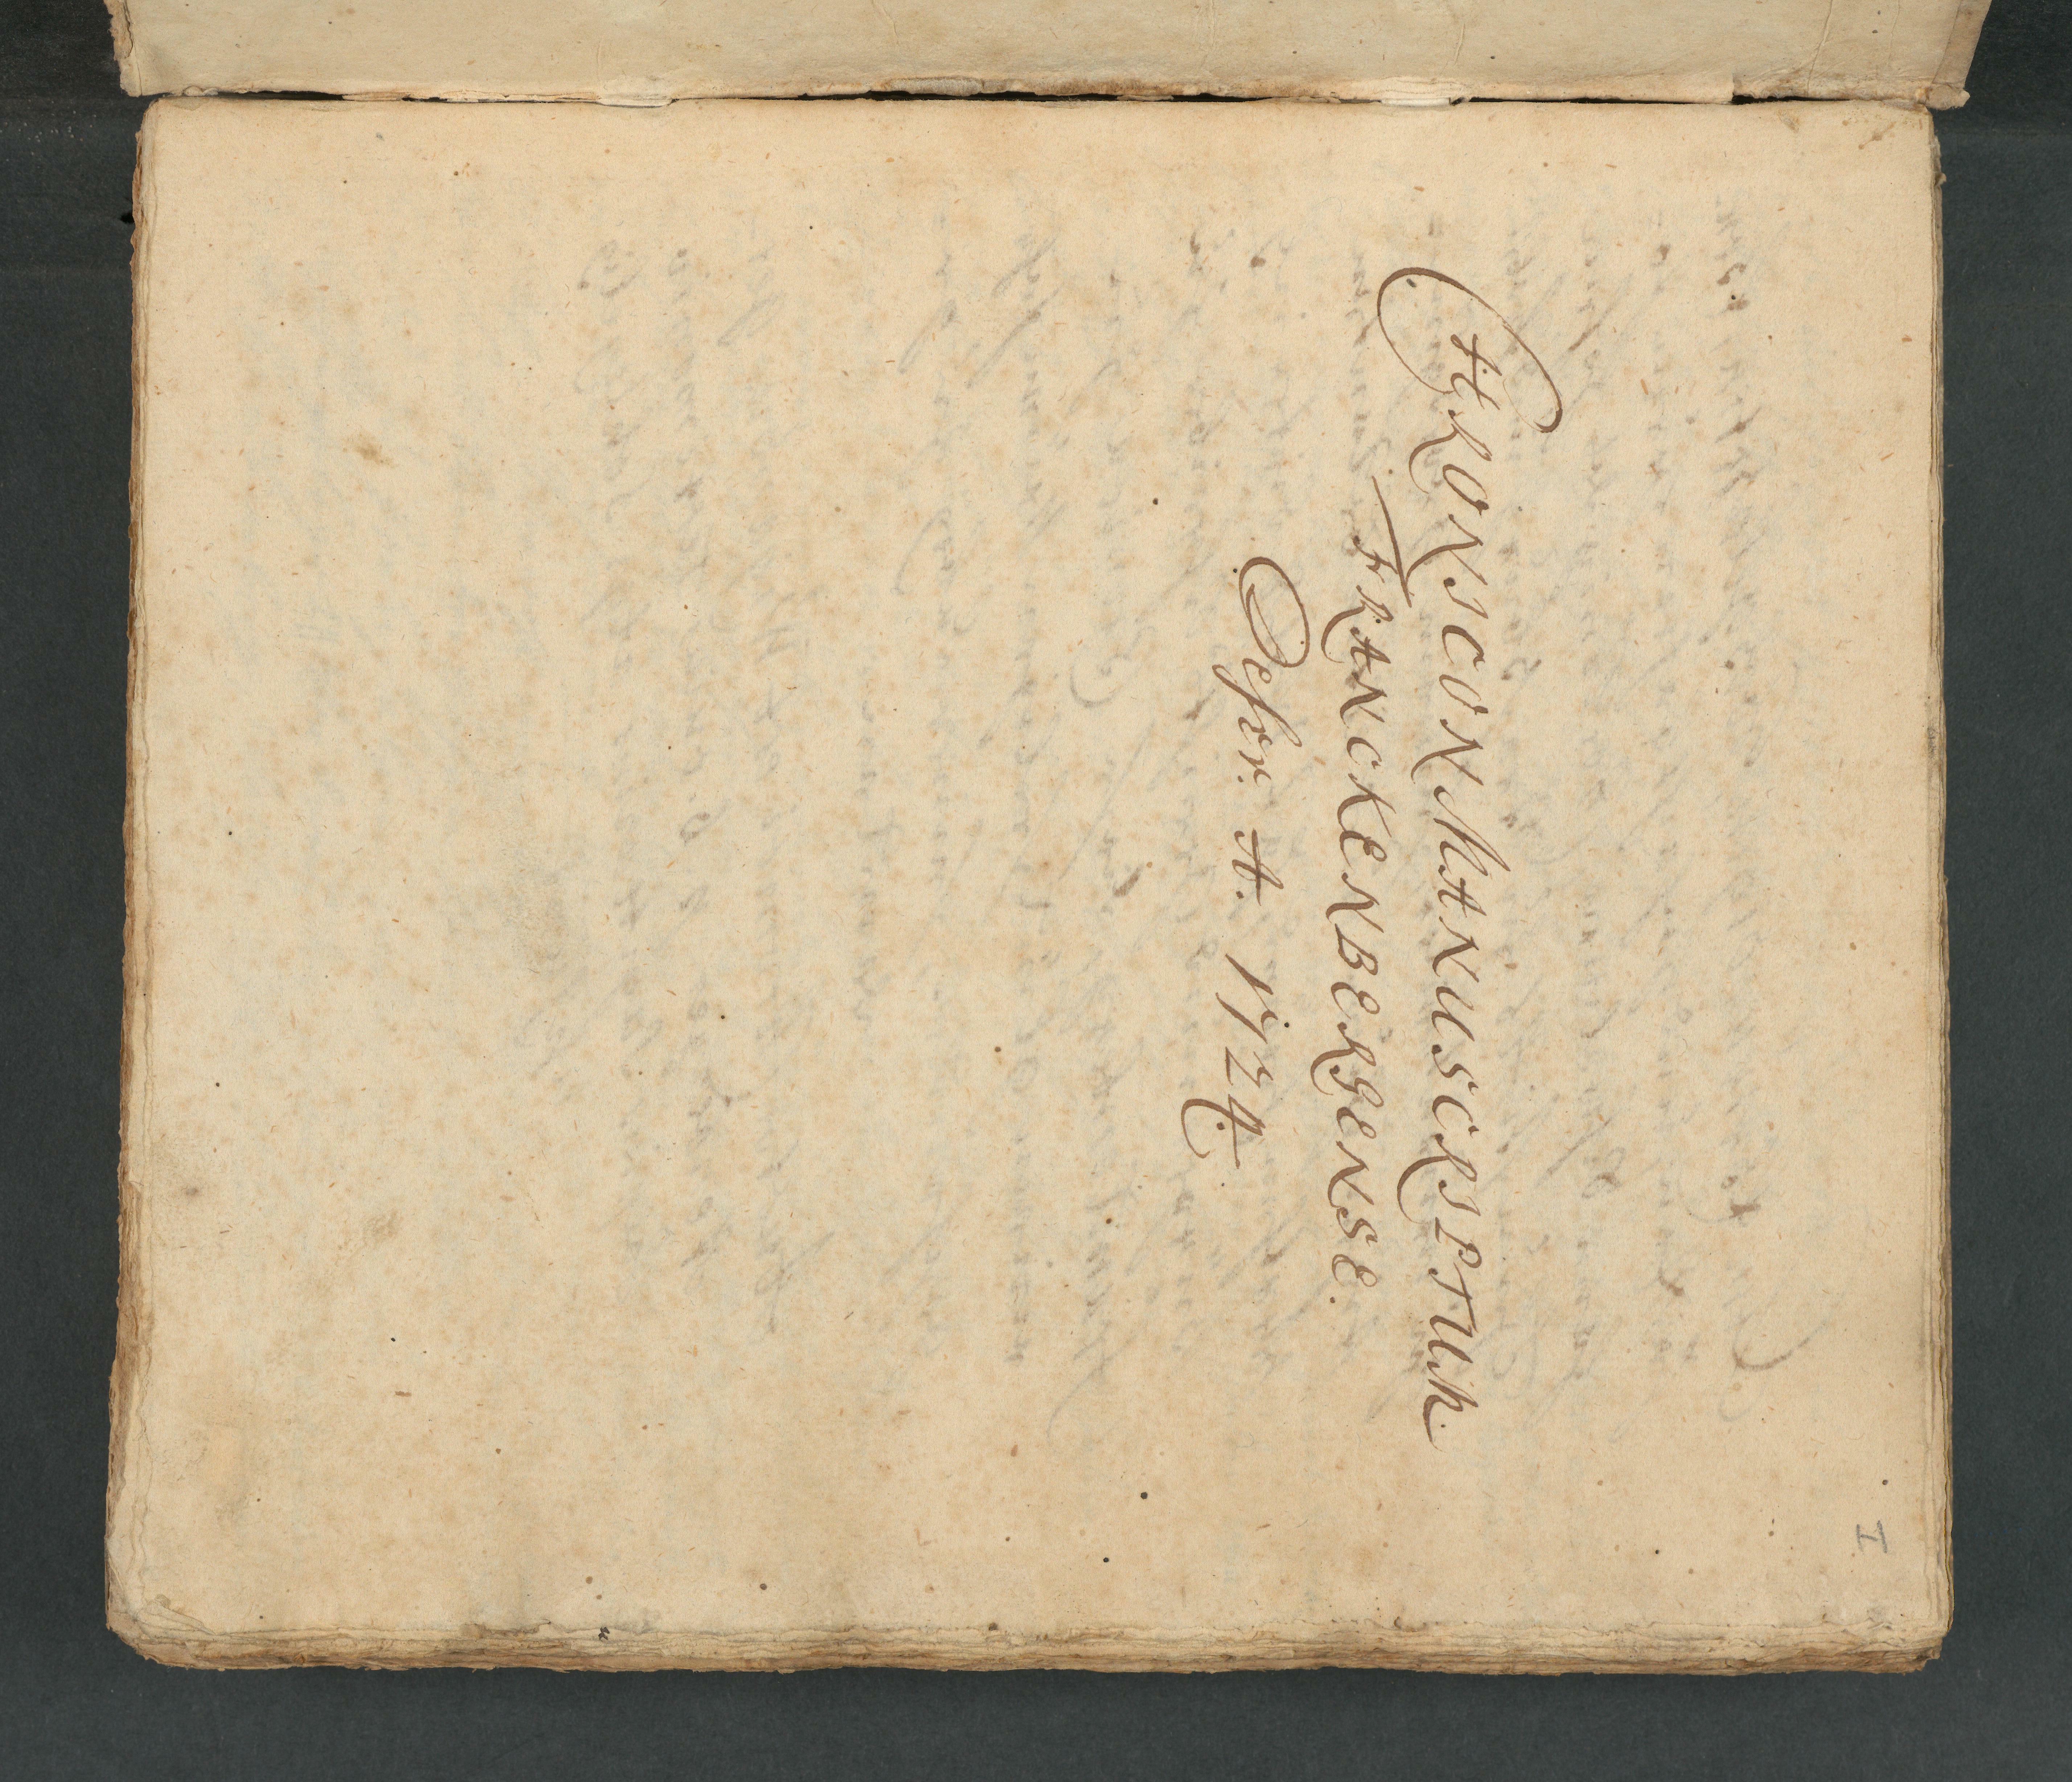 CHRONICON MANUSCRIPTUM
FRANCKENBERGENSE.
Descr. A. 1724.
I